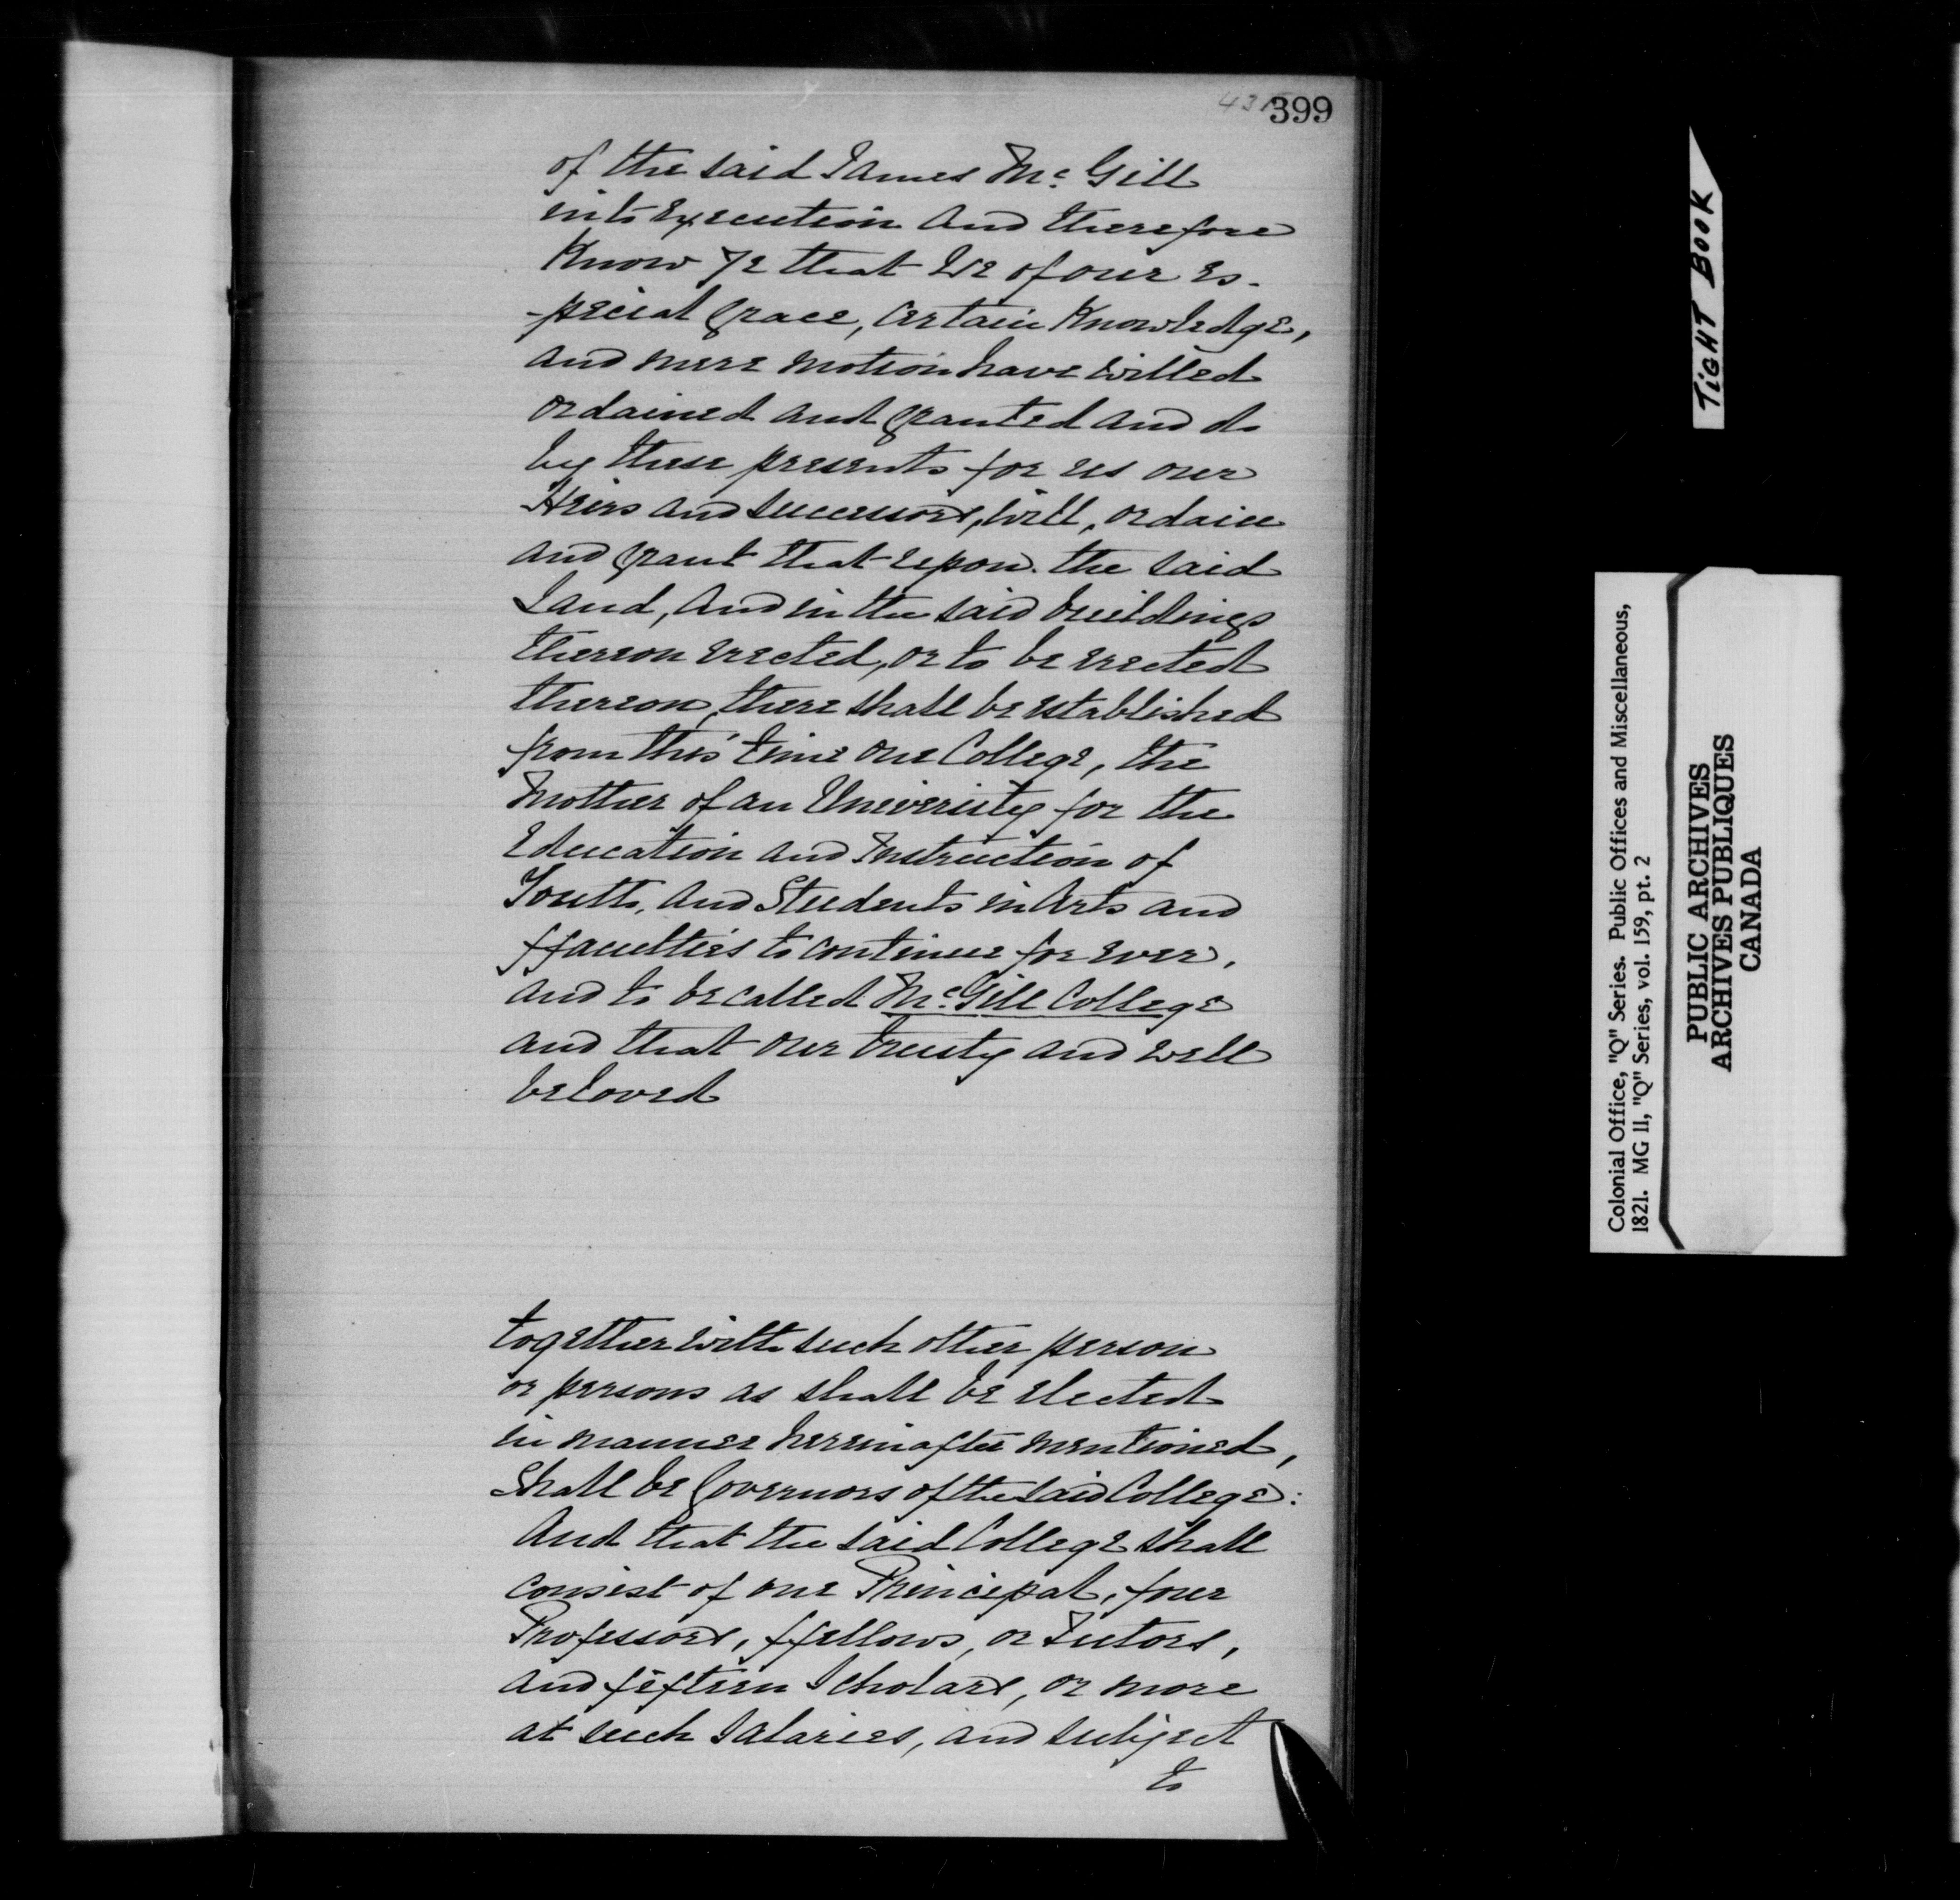 399
of the said James Mc. Gill
into Execution and therefore
Know Ye that We of our es-
-pecial Grace, Certain Knowledge,
and mere motion have Willed
ordained and Granted and do
by these presents for us our
Heirs and Successors, Will, ordain
and Grant that upon the said
Land, and in the said buildings
thereon erected, or to be erected
thereon, there shall be established
from this time one College, the
Mother of an University for the
Education and Instruction of
Youth, and Students in Arts and
ffaculties to continue for ever,
and to be called Mc. Gill College
and that our trusty and well
beloved
together with such other person
or persons as shall be elected
in manner hereinafter mentioned,
Shall be Governors of the said College:
And that the said College shall
consist of one Principal, four
Professors, ffellows, or Tutors,
and fifteen Scholars, or more
at such Salaries, and subject
to
TiGHT BOOK
Colonial Office, "Q" Series. Public Offices and Miscellaneous,
1821. MG 11, "Q" Series, vol. 159, pt. 2
PUBLIC ARCHIVES
ARCHIVES PUBLIQUES
CANADA